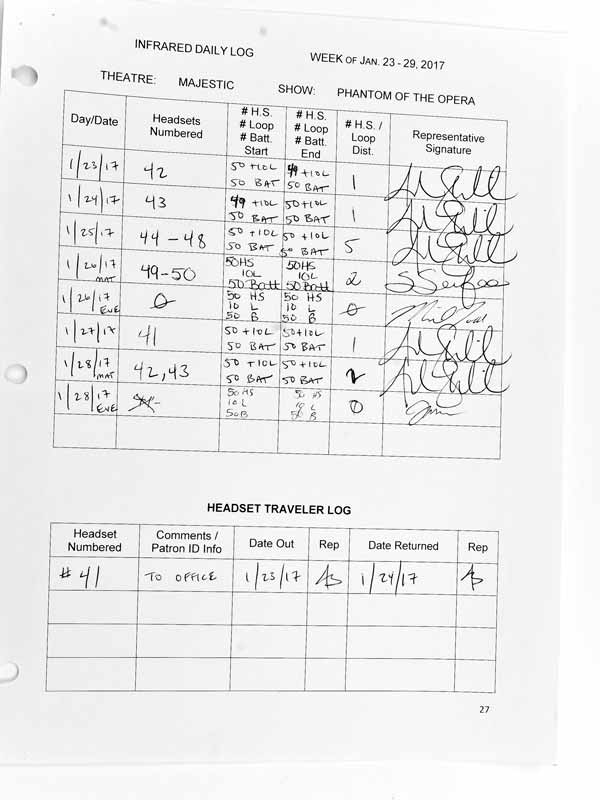 INFRARED DAILY LOG WEEK OF JAN. 23 - 29, 2017
THEATRE: MAJESTIC SHOW: PHANTOM OF THE OPERA
Day/Date Headsets Numbered # H.S. # Loop # Batt. Start # H.S. # Loop # Batt. End # H.S. / Loop Dist. Representative Signature
1/23/17 42 50 +10L 50 BAT 49 +10L 50 BAT 1
1/24/17 43 49 +10L 50 BAT 50+10L 50 BAT 1
1/25/17 44-48 50 +10L 50 BAT 50 +10L 50 BAT 5
1/26/17 MAT 49-50 50HS 10L 50 Batt 50HS 10L 50 Batt 2
1/26/17 EVE 0 50 HS 10 L 50 B 50 HS 10 L 50 B 0
1/27/17 41 50 +10L 50 BAT 50+10L 50 BAT 1
1/28/17 MAT 42,43 50 +10L 50 BAT 50 +10L 50 BAT 2
1/28/17 EVE 50 HS 10 L 50 B 50 HS 10 L 50 B 0
HEADSET TRAVELER LOG
Headset Numbered Comments / Patron ID Info Date Out Rep Date Returned Rep
# 41 TO OFFICE 1/23/17 AB 1/24/17 AB
27